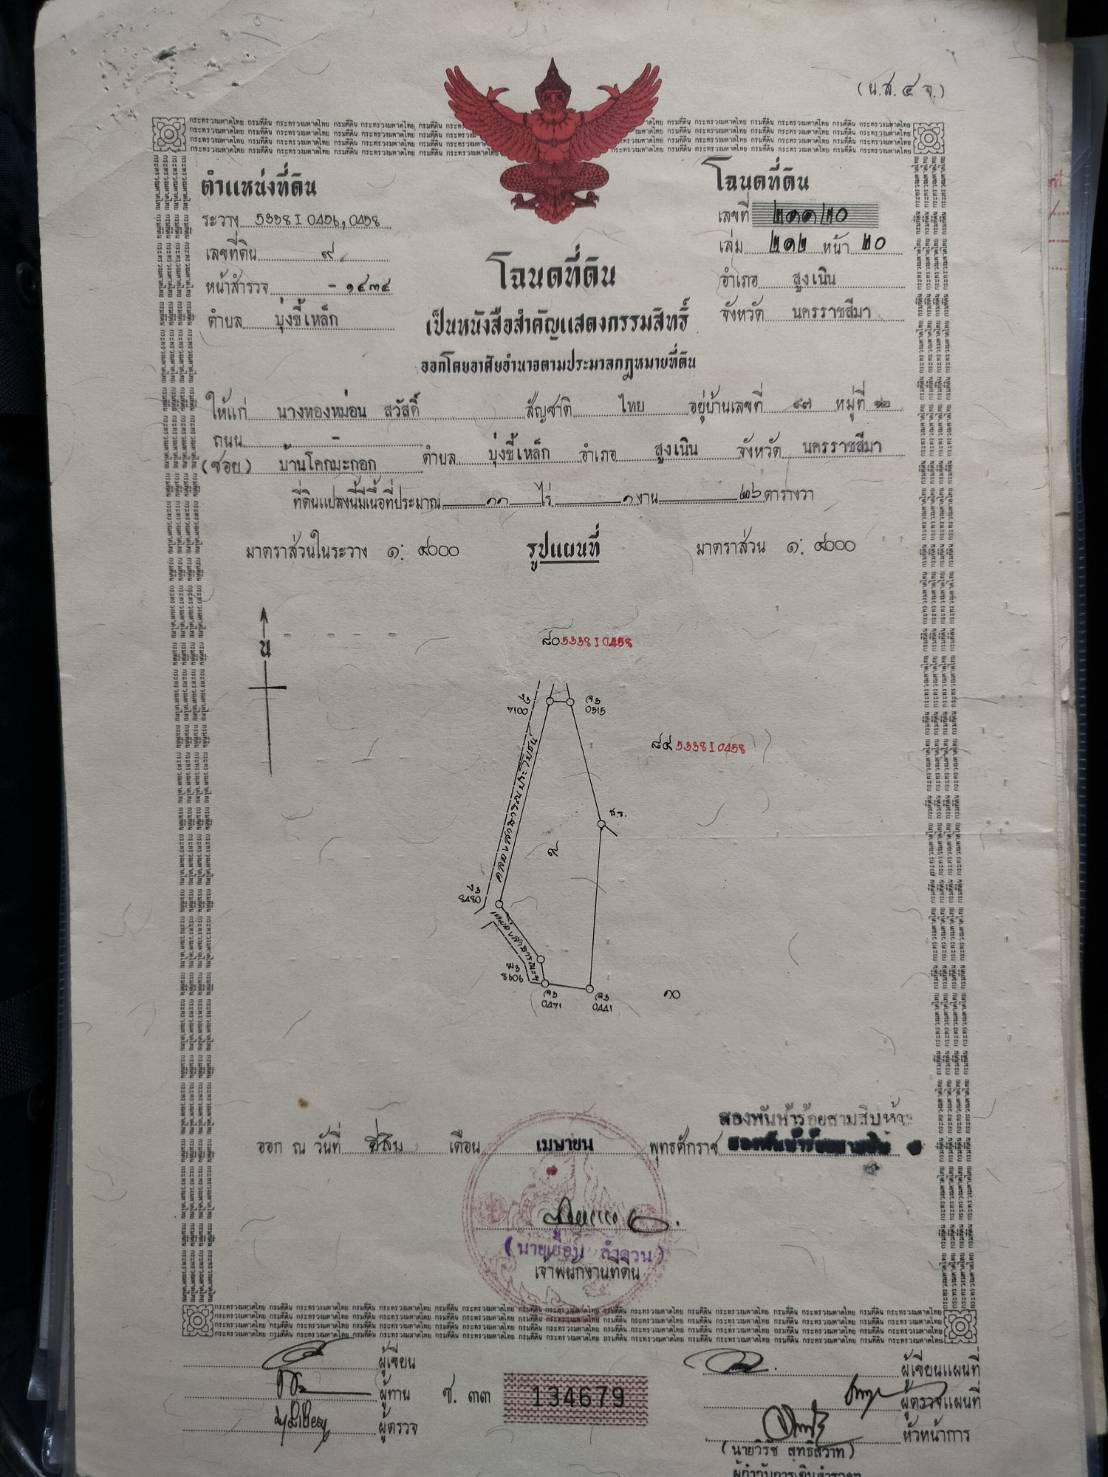 (น.ส. ๔ จ.)
ตำแหน่งที่ดิน
ระวาง 5338 I 0456, 0458
เลขที่ดิน ๙
หน้าสำรวจ - ๑๔๓๔
ตำบล บุ่งขี้เหล็ก
โฉนดที่ดิน
เลขที่ ๒๑๑๒๐
เล่ม ๒๑๒ หน้า ๒๐
อำเภอ สูงเนิน
จังหวัด นครราชสีมา
โฉนดที่ดิน
เป็นหนังสือสำคัญแสดงกรรมสิทธิ์
ออกโดยอาศัยอำนาจตามประมวลกฎหมายที่ดิน
ให้แก่ นางทองหม่อน สวัสดิ์ สัญชาติ ไทย อยู่บ้านเลขที่ ๔๗ หมู่ที่ ๑๒
ถนน -
(ซอย) บ้านโคกมะกอก ตำบล บุ่งขี้เหล็ก อำเภอ สูงเนิน จังหวัด นครราชสีมา
ที่ดินแปลงนี้มีเนื้อที่ประมาณ ๑๑ ไร่ ๑ งาน ๒๖ ตารางวา
มาตราส่วนในระวาง ๑: ๔๐๐๐ รูปแผนที่ มาตราส่วน ๑: ๔๐๐๐
น
๘๐ 5338 I 0458
0315
๘๔ 5338 I 0458
คลองสาธารณประโยชน์
๙
8480
8606
0471
0441
๑๐
สองพันห้าร้อยสามสิบห้า
ออก ณ วันที่ ยี่สิบ เดือน เมษายน พุทธศักราช
เจ้าพนักงานที่ดิน
ผู้เขียน
ผู้ทาน
ผู้ตรวจ
ช. ๓๓ 134679
ผู้เขียนแผนที่
ผู้ตรวจแผนที่
หัวหน้าการ